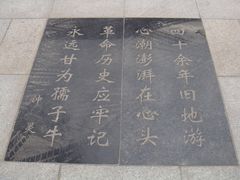 四十余年旧地游
心潮澎湃在心头
革命历史应牢记
永远甘为孺子牛